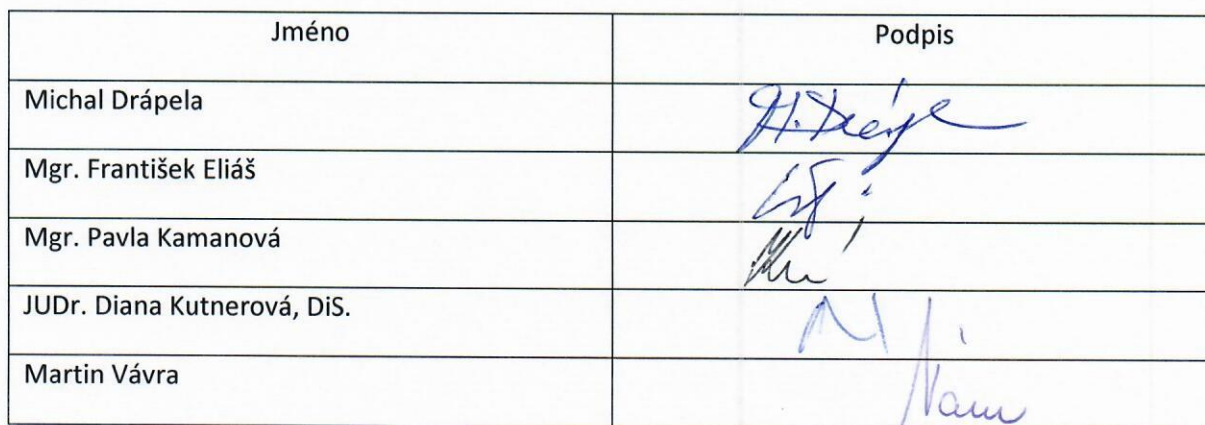 Jméno Podpis
Michal Drápela
Mgr. František Eliáš
Mgr. Pavla Kamanová
JUDr. Diana Kutnerová, DiS.
Martin Vávra